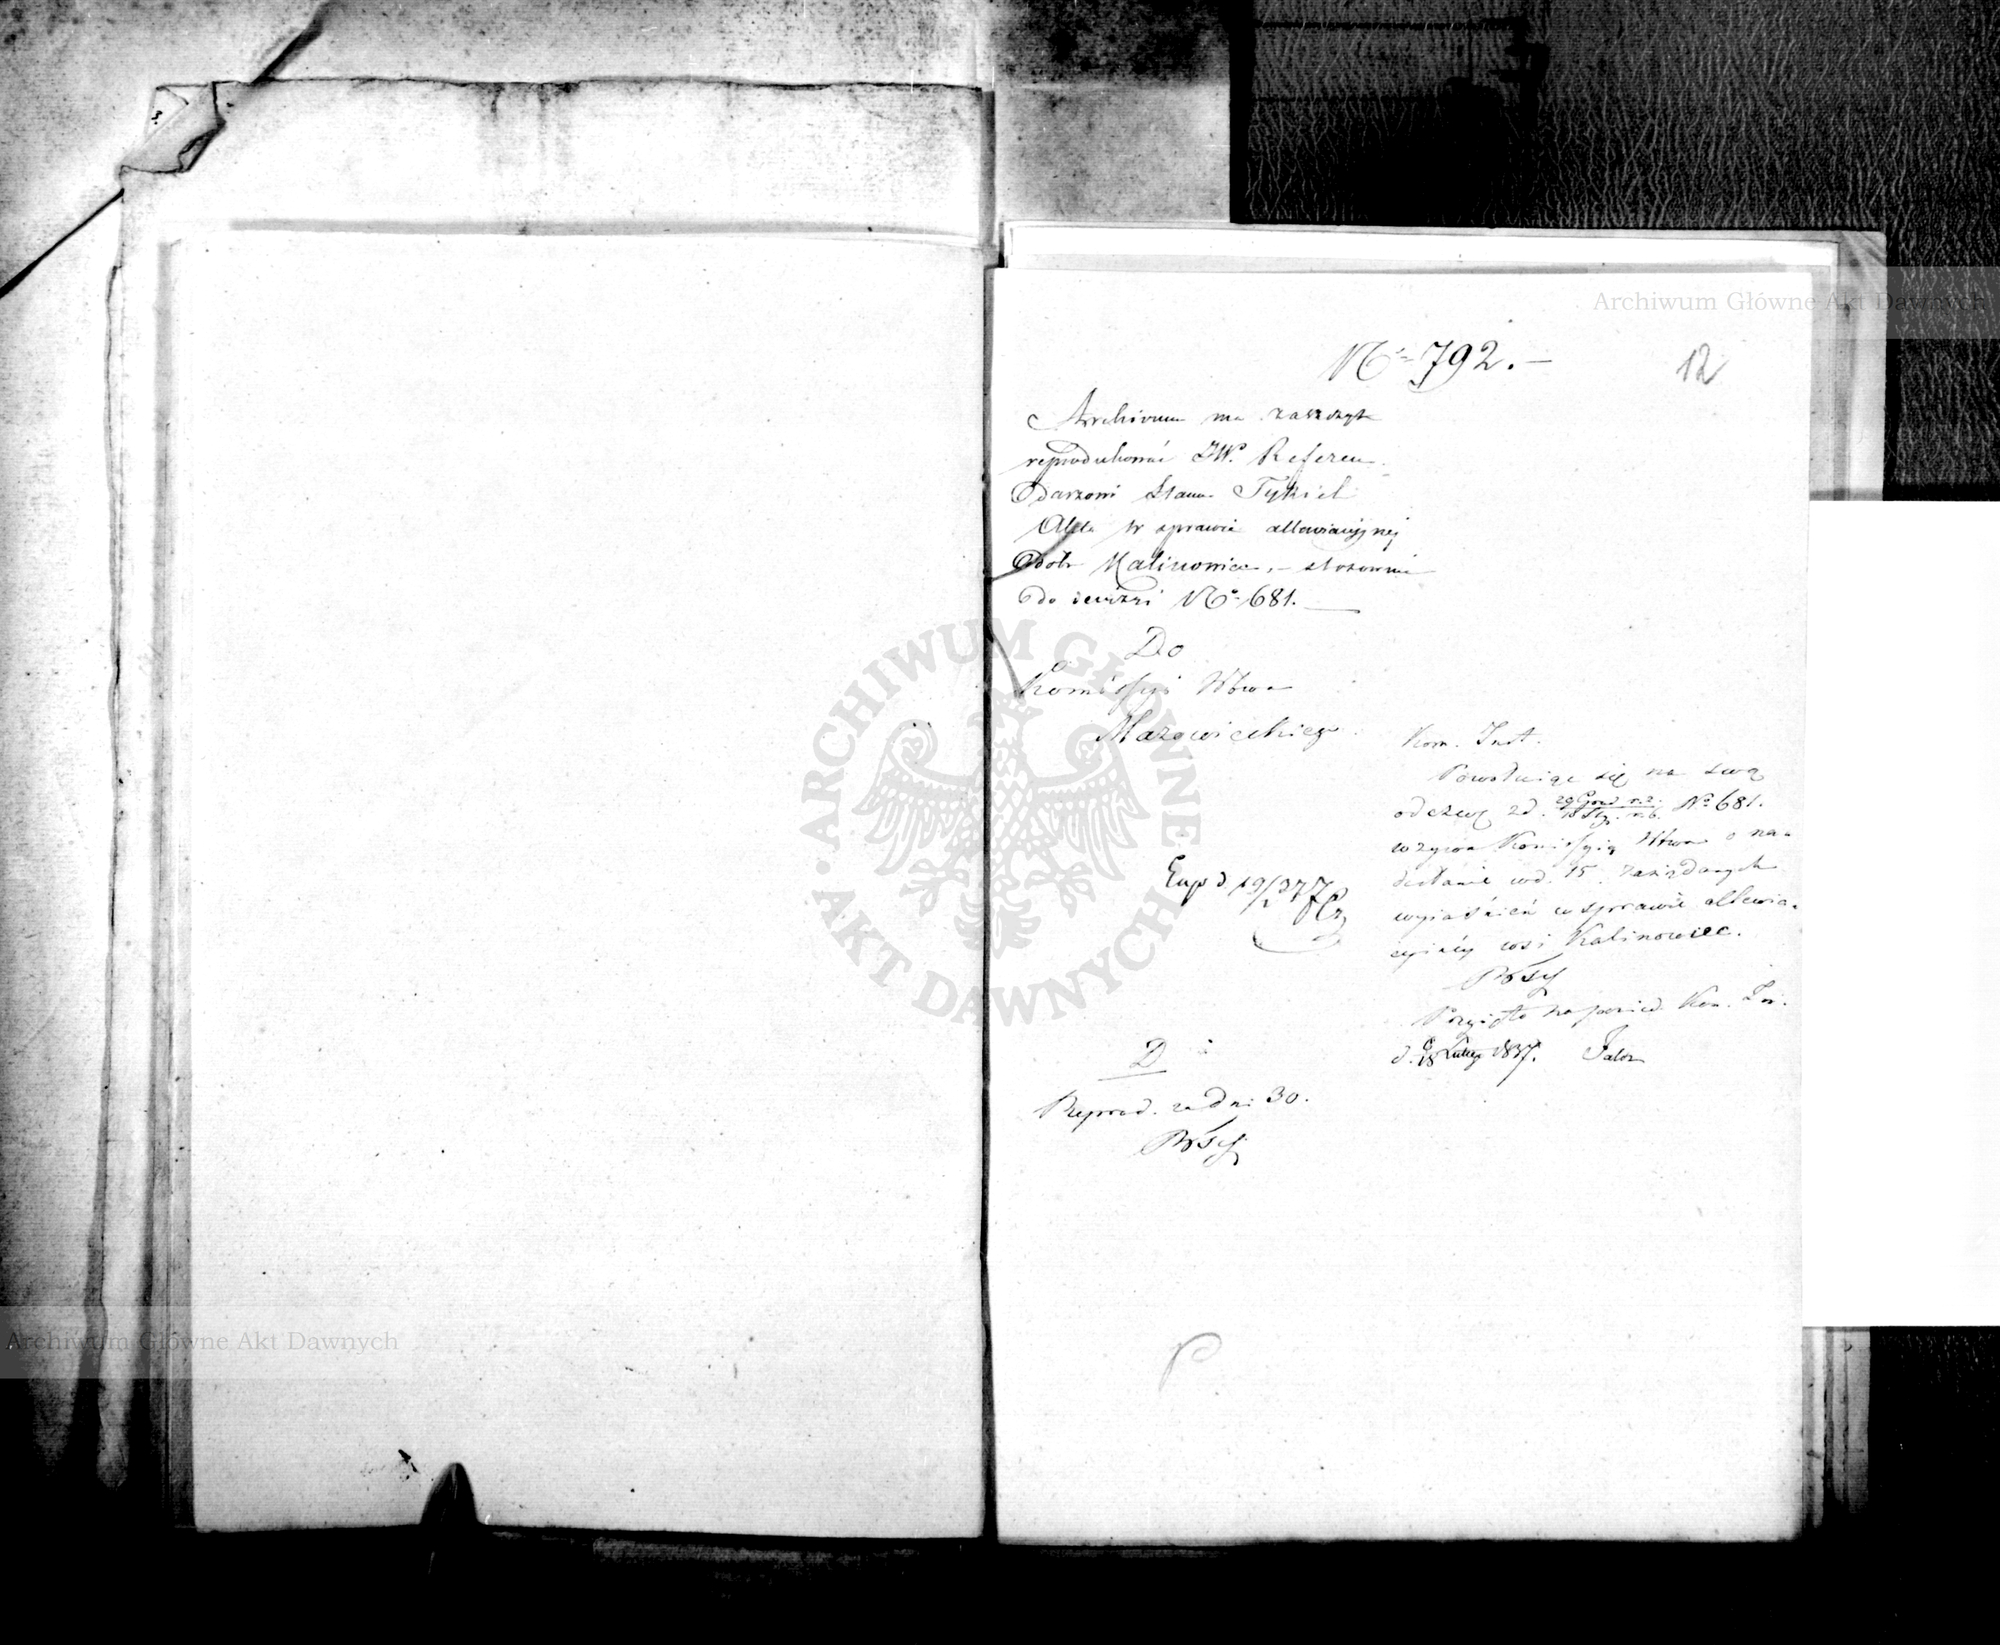 Archiwum Główne Akt Dawnych
No 792. —
12
Archivum ma zaszczyt
reprodukować JW. Referen
darzowi Stanu Tykiel
Akta w sprawie allewiacyjnej
Dóbr Kalinowiec, – stosownie
do decyzzi No 681. —
Do
Kommissyi Wtwa
Mazowieckiego
Kom. Inst.
Powołuiąc się na swą
odezwę z d. 29 Grud. r. z. / 10 Sty. r. b. No 681.
wzywa Kommissyią Wtwa o na-
desłanie w d. 15 zażądanych
wyiaśnień w sprawie allewia-
cyiney wsi Kalinowiec.
Przyięto na posied. Kom. In.
d. 6/18 Lutego 1837.
Exp d 19/2 37
D
Reprod. za dni 30.
Archiwum Główne Akt Dawnych
ARCHIWUM GŁÓWNE AKT DAWNYCH